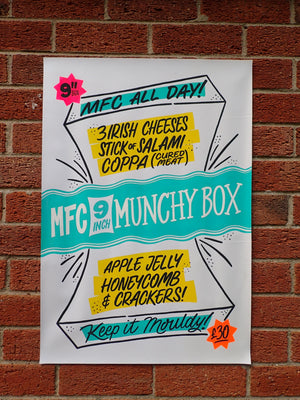 9"
MFC ALL DAY!
3 IRISH CHEESES
STICK OF SALAMI
COPPA (CURED MEAT)
MFC 9 INCH MUNCHY BOX
APPLE JELLY
HONEYCOMB
& CRACKERS!
Keep it Mouldy!
£30